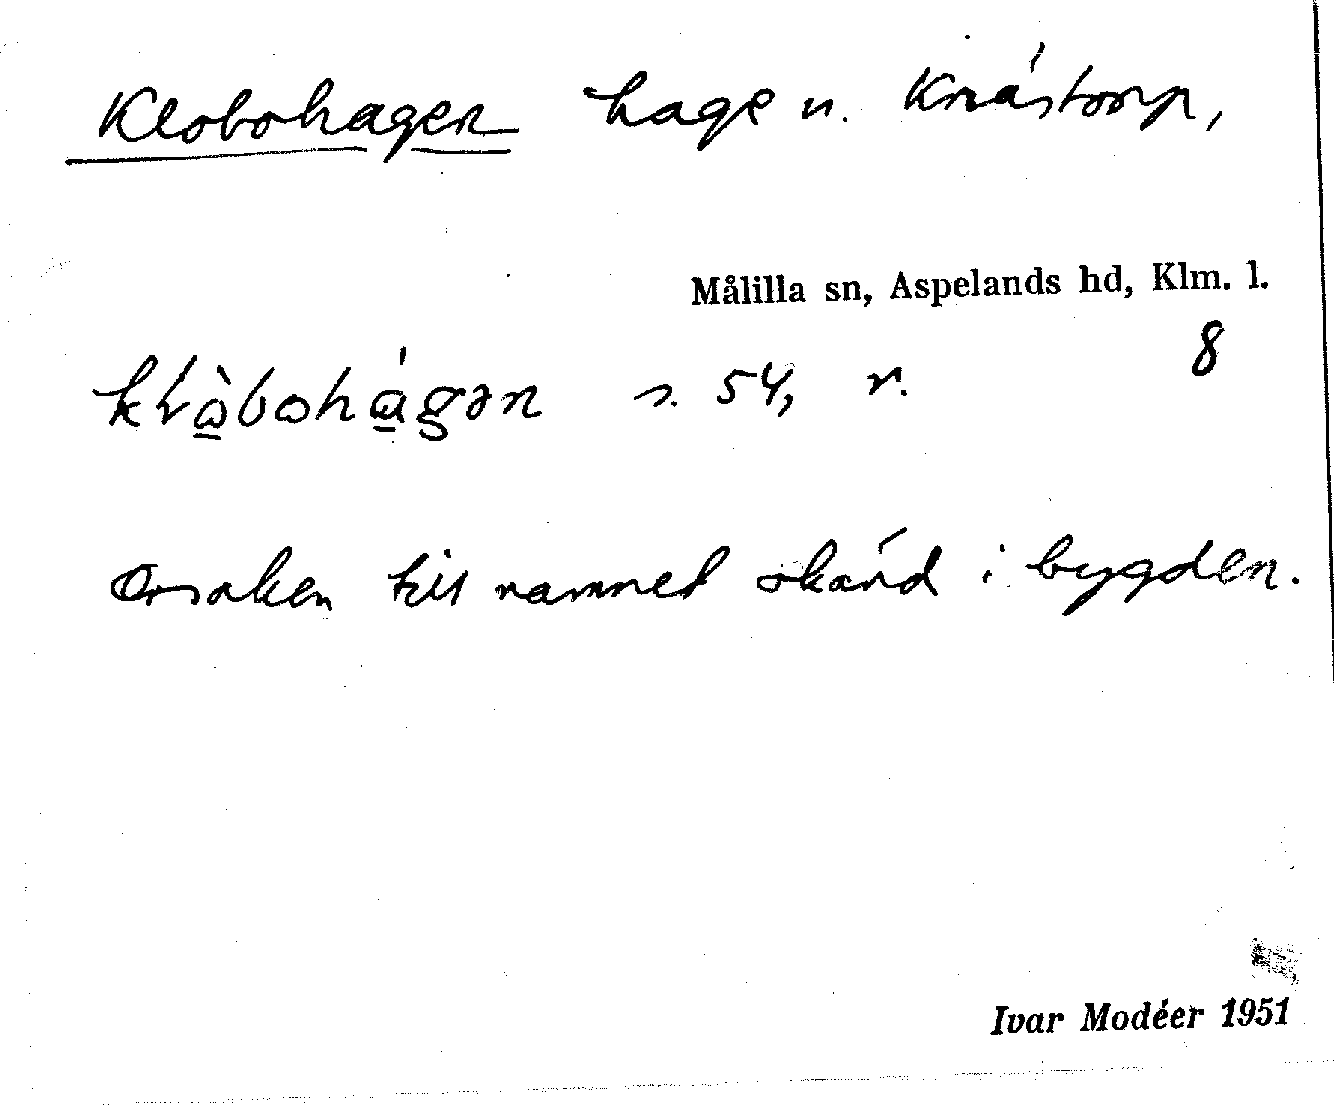 Klobohagen hage u. Knástorp,
Målilla sn, Aspelands hd, Klm. l.
8
s. 54, r.
Orsaken till namnet okänd i bygden.
Ivar Modéer 1951